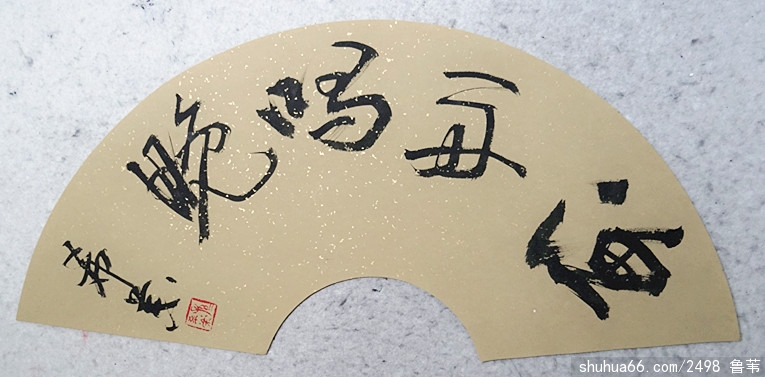 渔舟唱晚
shuhua66.com/2498 鲁苇